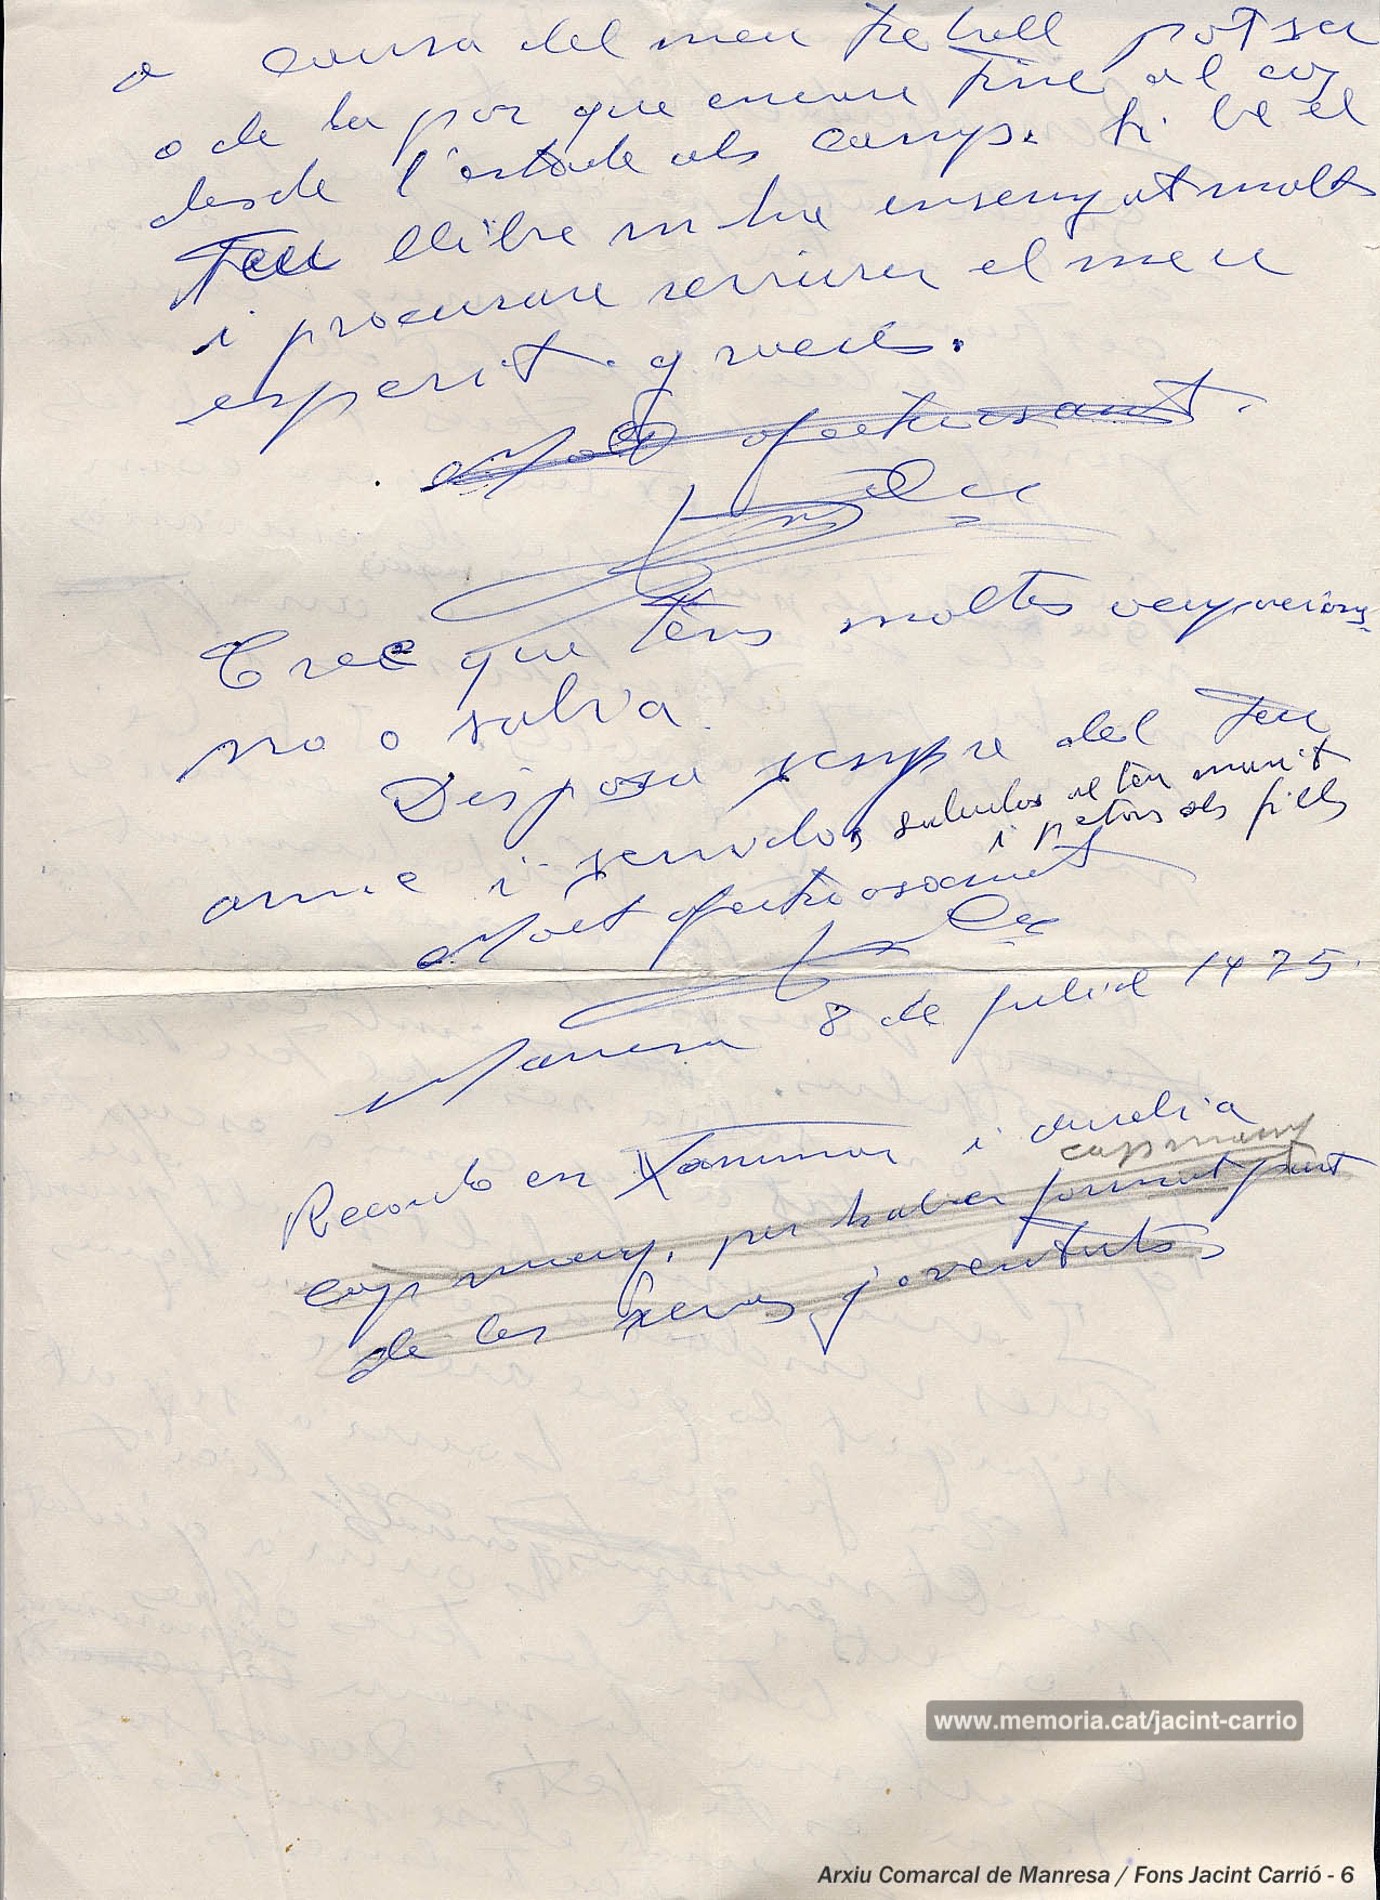 a causa del meu treball potser
o de la por que encare tinc al cos
desde l'estade als camps. Si be el
teu llibre m'ha ensenyat molts
i procurare seriurer el meu
esperit. gracies.
Molt afectuosament.
Crec que tens moltes ocupacions
no o sabia.
Disposa sempre del teu
amic i servidor, saludos al teu marit
i petons als fills
Molt afectuosament
Manresa 8 de juliol 1975.
Recordo en Xammar i Aurelia
capmany
capmany, per haber format part
de les seves joventuts
www.memoria.cat/jacint-carrio
Arxiu Comarcal de Manresa / Fons Jacint Carrió - 6